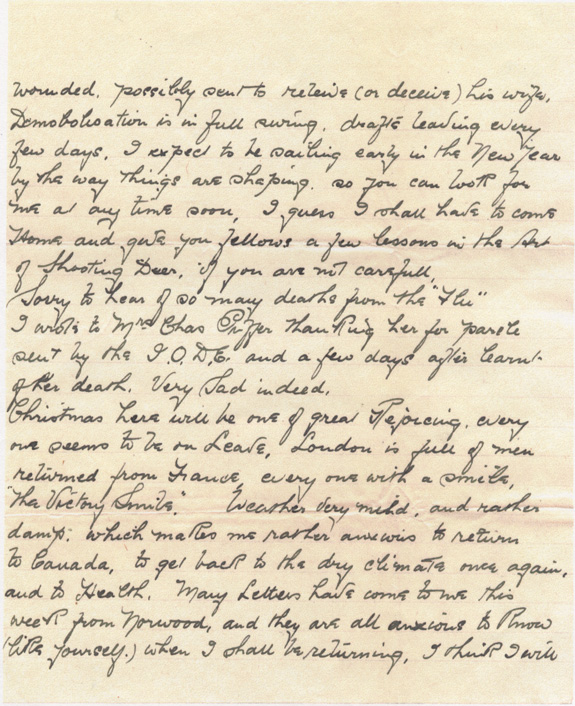 wounded. possibly sent to releive (or deceive) his wife.
Demobolisation is in full swing. drafts leaving every
few days. I expect to be sailing early in the New Year
by the way things are shaping. so you can look for
me at any time soon, I guess I shall have to come
Home and give you fellows a few lessons in the Art
of Shooting Deer, if you are not carefull,
Sorry to hear of so many deaths from the "Flu"
I wrote to Mrs Chas thanking her for parcle
sent by the I.O.D.E. and a few days after learnt
of her death. Very Sad indeed.
Christmas here will be one of great Rejoicing. every
one seems to be on Leave, London is full of men
returned from France, every one with a smile,
"the Victory Smile". Weather Very mild, and rather
damp. which makes me rather anxious to return
to Canada, to get back to the dry climate once again,
and to Health. Many Letters have come to me this
week from Norwood, and they are all anxious to know
(like yourself.) when I shall be returning, I think I will